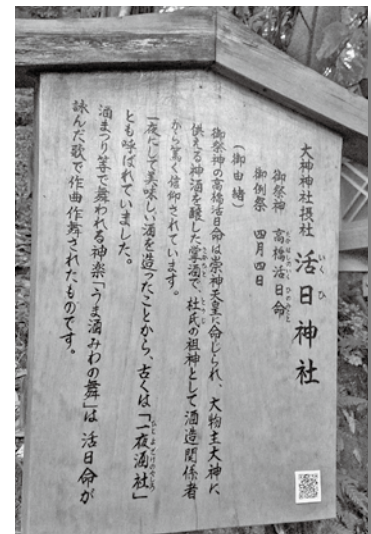 大神神社摂社 活日神社
いくひ
御祭神 高橋活日命
たかはしのいくひのみこと
御例祭 四月四日
(御由緒)
御祭神の高橋活日命は崇神天皇に命じられ、大物主大神に
供える神酒を醸した掌酒で、杜氏の祖神として酒造関係者
とうじ
から篤く信仰されています。
一夜にして美味しい酒を造ったことから、古くは「一夜酒社」
とも呼ばれていました。
酒まつり等で舞われる神楽「うま酒みわの舞」は 活日命が
詠んだ歌で作曲作舞されたものです。